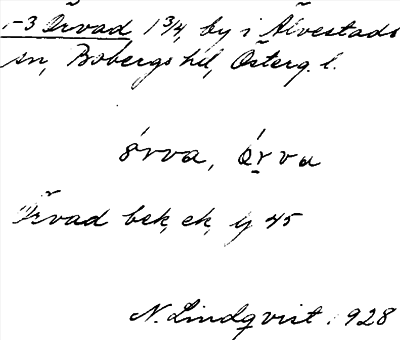 1-3 Örvad 1 3/4, by i Älvestads
sn, Bobergs hd, Österg. l.
órva, Órva
Örvad bek, ek, y 45
N. Lindqvist 1928